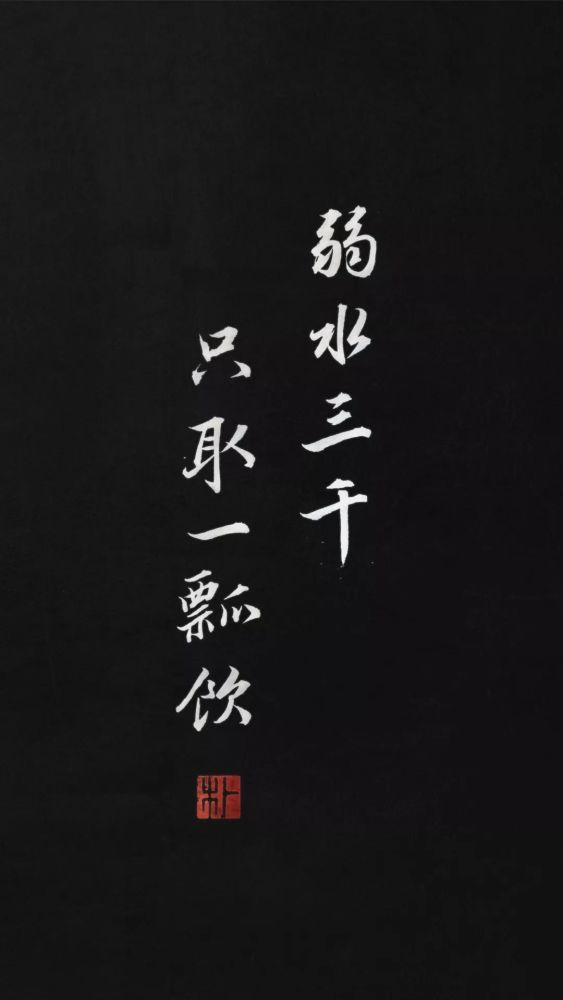 弱水三千
只取一瓢饮
朴